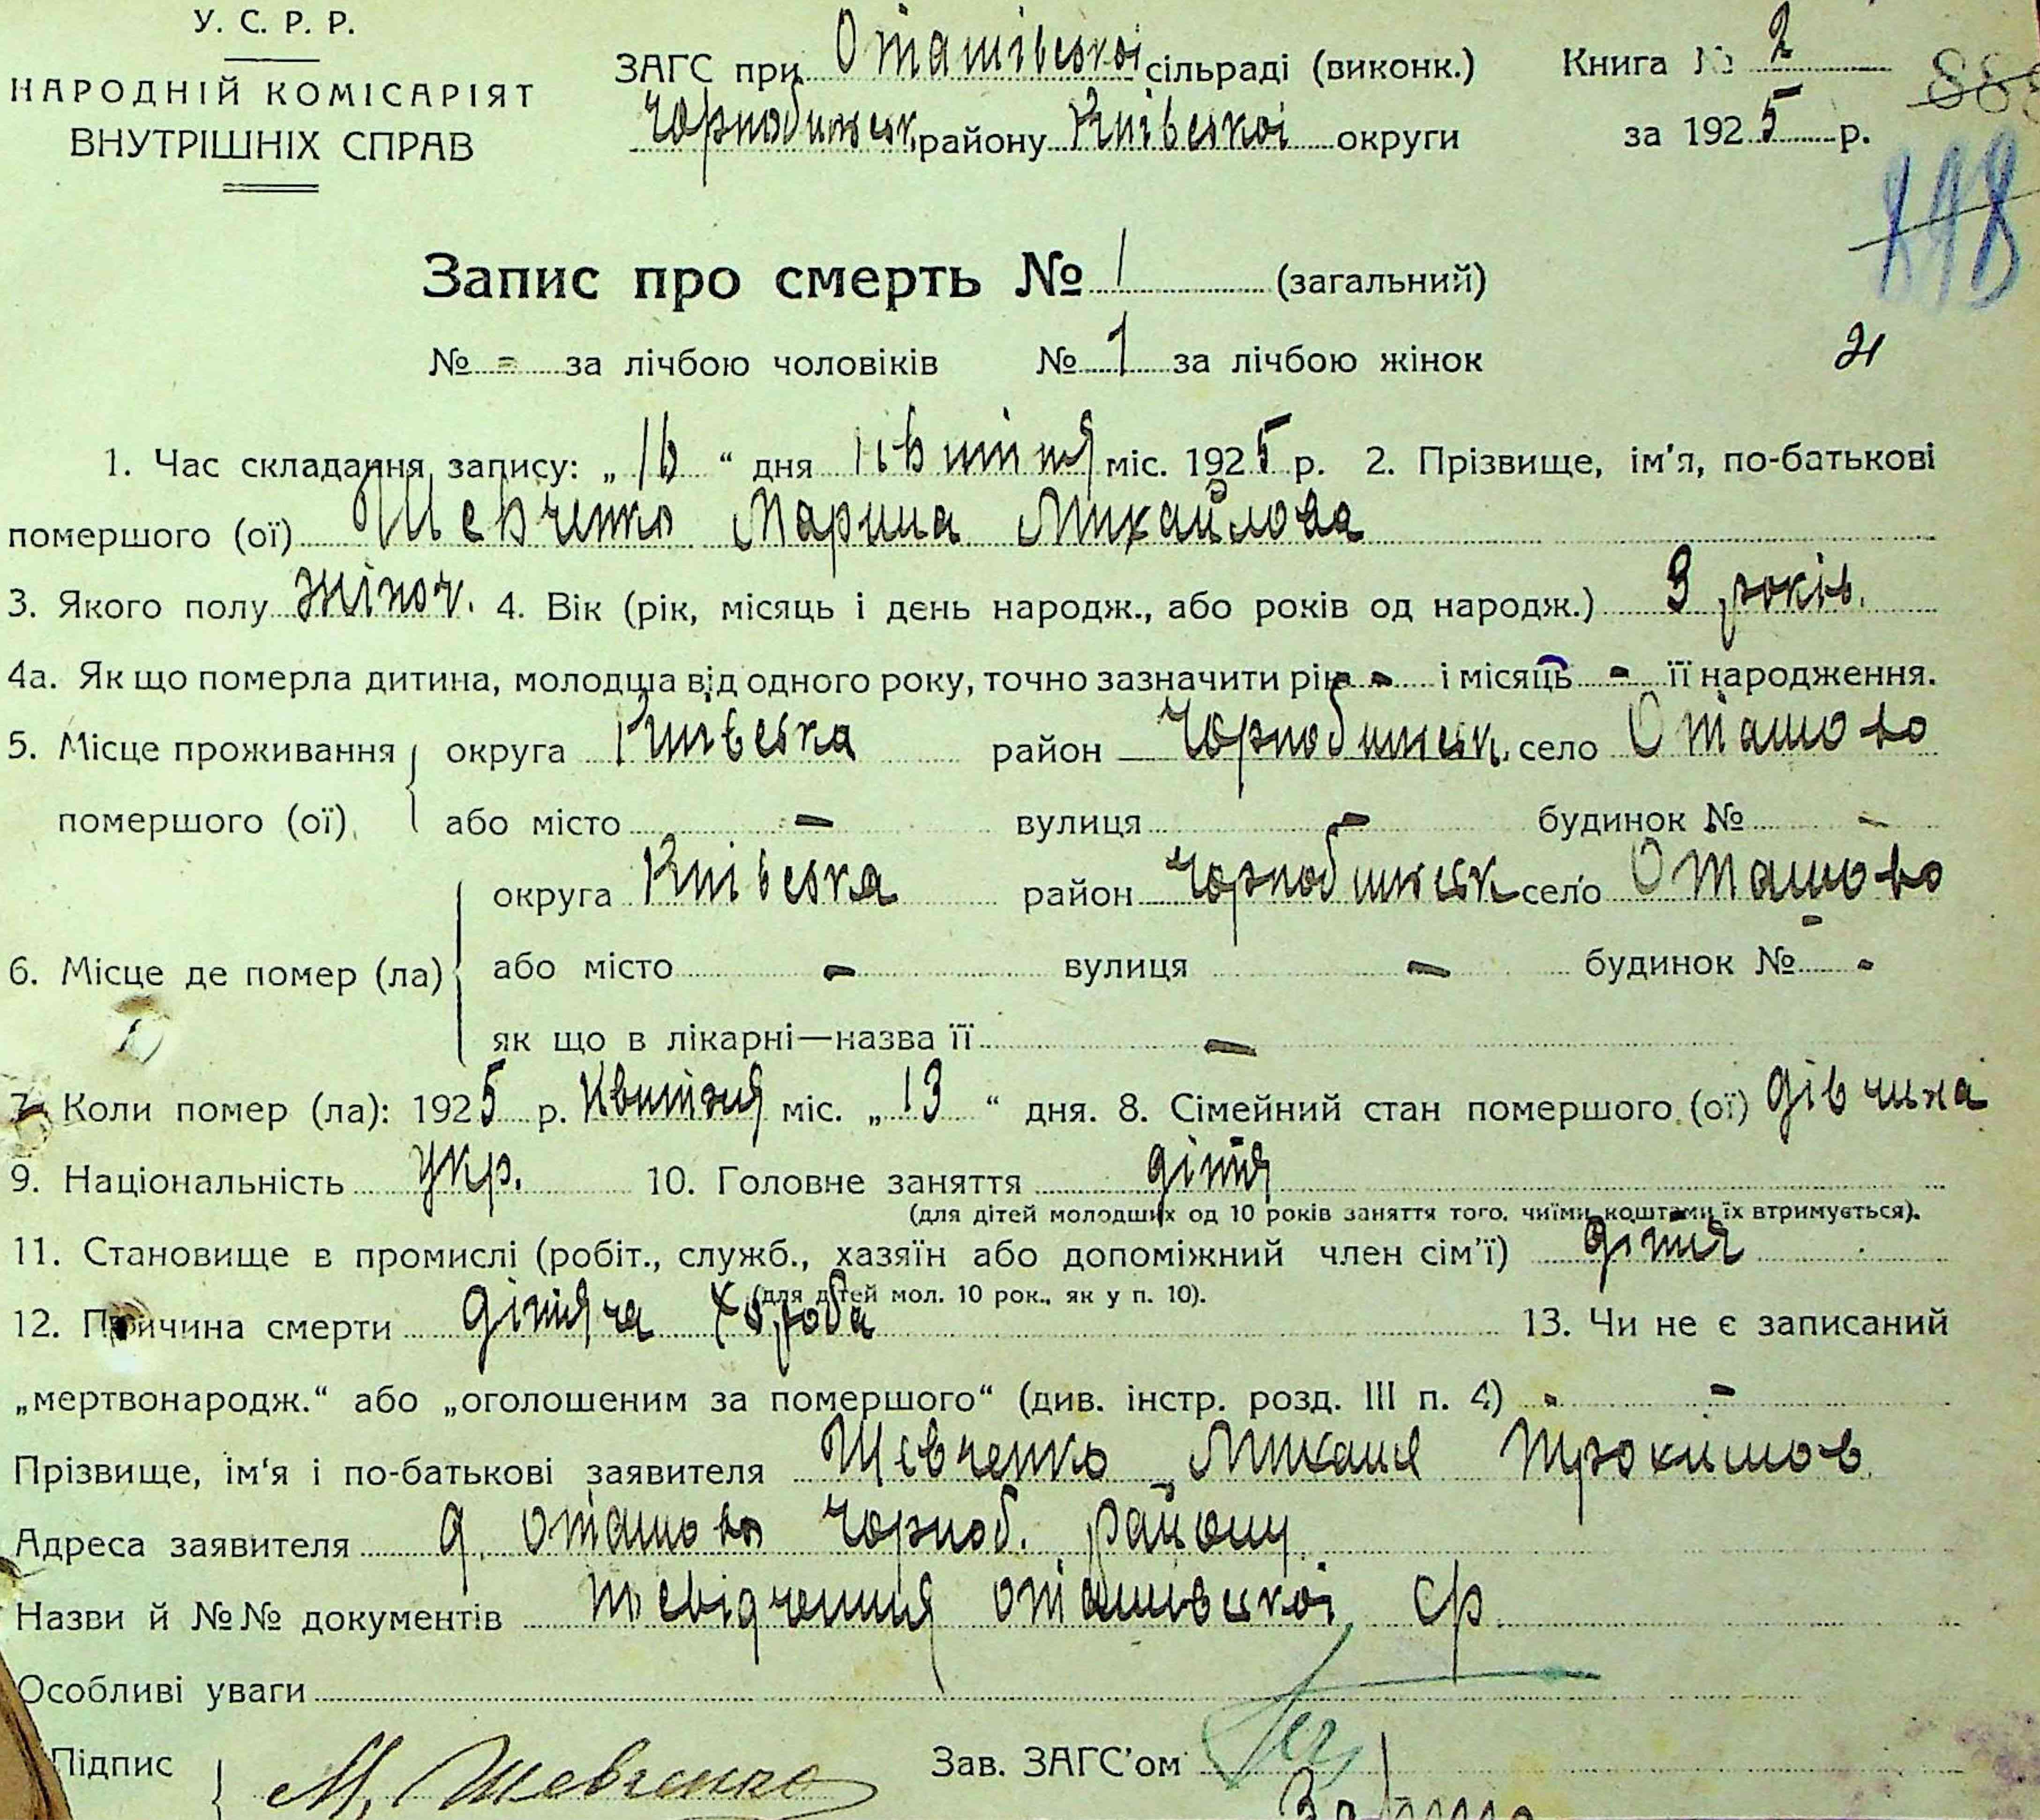 У. С. Р. Р.
НАРОДНІЙ КОМІСАРІЯТ
ВНУТРІШНІХ СПРАВ
ЗАГС при Оташівськоі сільраді (виконк.)
Чорнобильськ. району Київськоі округи
Книга № 2
за 1925 р.
Запис про смерть № 1 (загальний)
№ - за лічбою чоловіків № 1 за лічбою жінок
21
1. Час складання запису: „16“ дня квітня міс. 1925 р. 2. Прізвище, ім'я, по-батькові
помершого (ої) Шевченко Марина Михайлова
3. Якого полу жіноч. 4. Вік (рік, місяць і день народж., або років од народж.) 3 років.
4а. Як що померла дитина, молодша від одного року, точно зазначити рік - і місяць - її народження.
5. Місце проживання округа Київська район Чорнобильськ. село Оташово
помершого (ої) або місто - вулиця - будинок № -
округа Київська район Чорнобильськ село Оташово
6. Місце де помер (ла) або місто - вулиця - будинок № -
як що в лікарні—назва її -
7. Коли помер (ла): 1925 р. Квитня міс. „13“ дня. 8. Сімейний стан помершого (ої) дівчина
9. Національність укр. 10. Головне заняття дітя
(для дітей молодших од 10 років заняття того, чиїми коштами їх втримується).
11. Становище в промислі (робіт., служб., хазяїн або допоміжний член сім'ї) дітя
(для дітей мол. 10 рок., як у п. 10).
12. Причина смерти дітяча хороба 13. Чи не є записаний
„мертвонародж.“ або „оголошеним за помершого“ (див. інстр. розд. III п. 4) - -
Прізвище, ім'я і по-батькові заявителя Шевченко Михаил Трохимов
Адреса заявителя д. Оташово Чорноб. району
Назви й №№ документів посвідчення оташівськоі ср.
Особливі уваги
Підпис М. Шевченко Зав. ЗАГС'ом